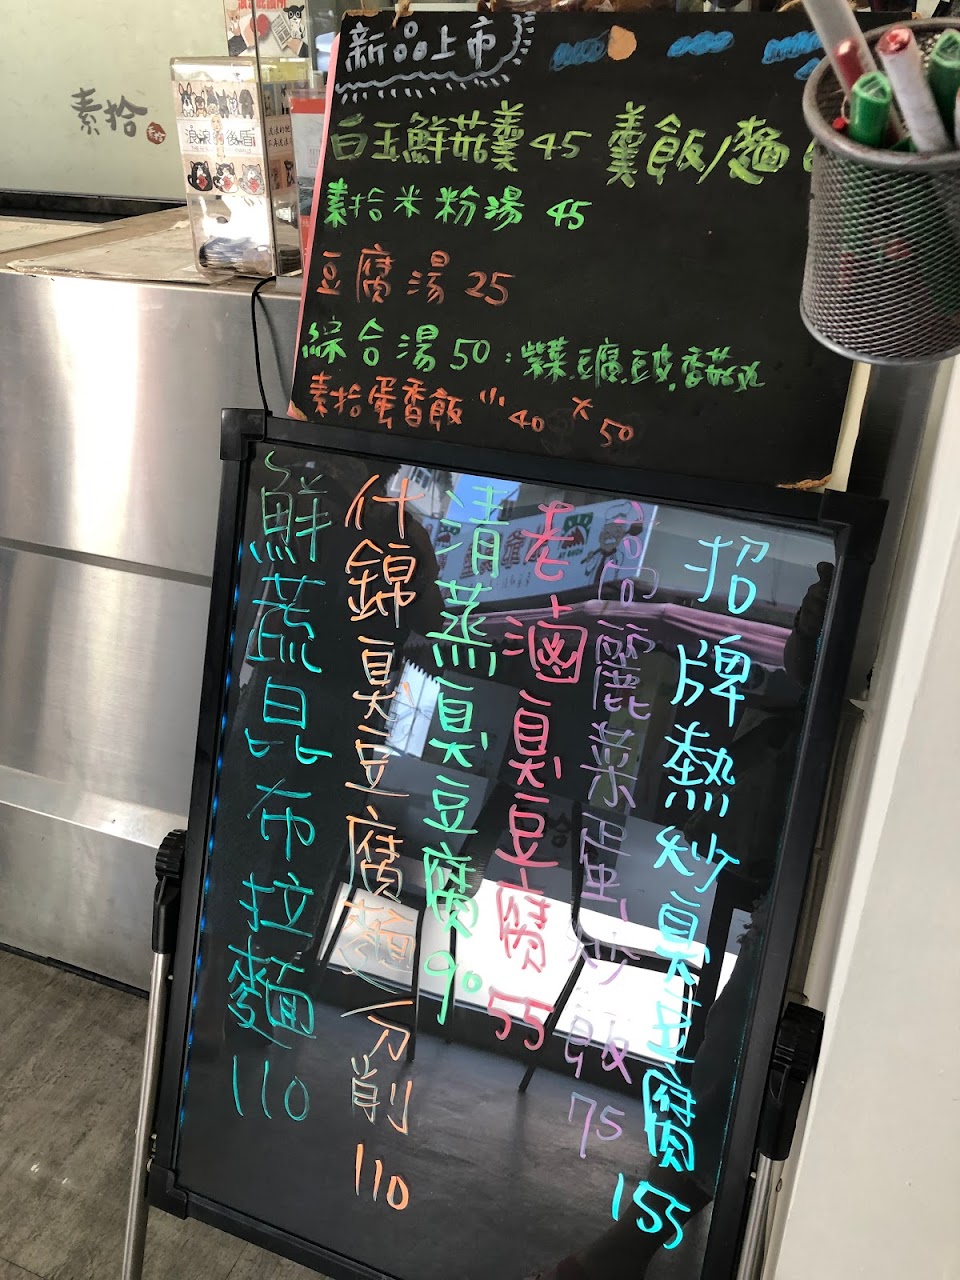 素拾
浪浪 後盾
新品上市
白玉鮮菇羹45 羹飯/麵
素拾米粉湯 45
豆腐湯 25
綜合湯50:紫菜.豆腐.豆皮.香菇丸
素拾蛋香飯 小40 大50
招牌熱炒臭豆腐 155
高麗菜蛋炒飯 75
老滷臭豆腐 55
清蒸臭豆腐 90
什錦臭豆腐麵/刀削 110
鮮蔬昆布拉麵 110